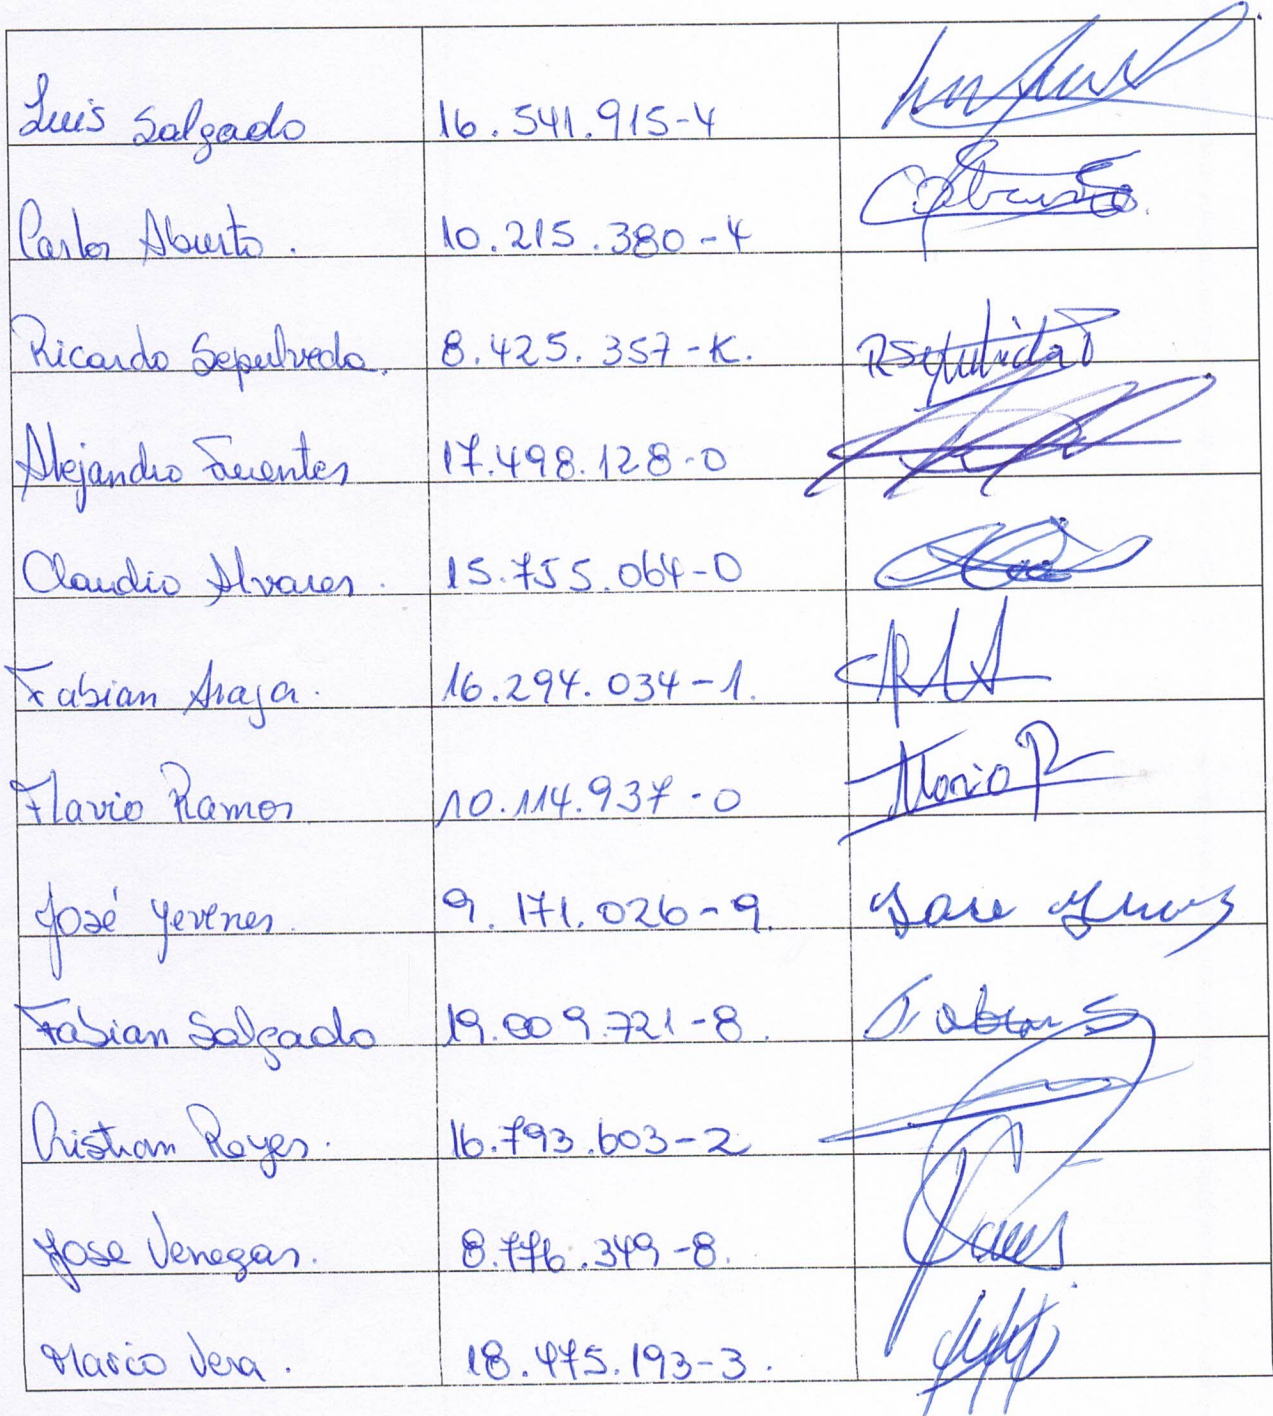 Luis Salgado 16.541.915-4
Carlos Aburto. 10.215.380-4
Ricardo Sepulveda. 8.425.357-K. RSepulveda
Alejandro Fuentes 17.498.128-0
Claudio Alvares. 15.755.064-0
Fabian Araya. 16.294.034-1.
Flavio Ramos 10.114.937-0
José Yevenes. 9.171.026-9. Jose
Fabian Salgado 19.009.721-8. Fabian S
Cristian Reyes. 16.793.603-2
Jose Venegas. 8.776.349-8.
Marco Vera. 18.475.193-3.